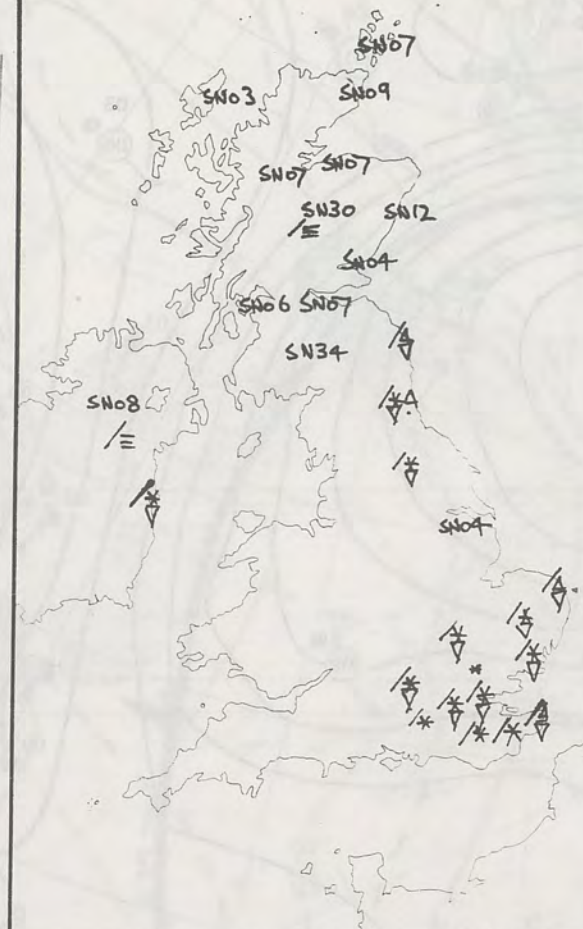 SN07
SN03
SN09
SN07
SN07
SN30
SN12
SN04
SN06 SN07
SN34
SN08
SN04